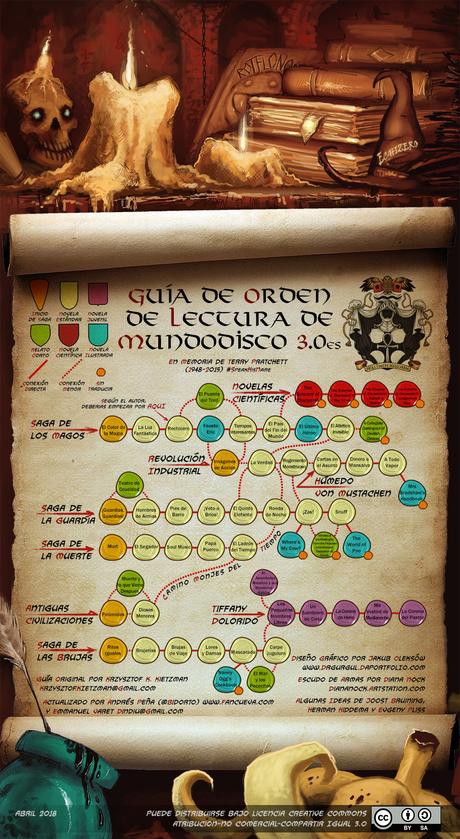 ROTFLONO
ECHIZERO
GUÍA DE ORDEN
DE LECTURA DE
MUNDODISCO 3.0ES
EN MEMORIA DE TERRY PRATCHETT
(1948-2015) #SPEAKHISNAME
INICIO DE SAGA
NOVELA ESTÁNDAR
NOVELA JUVENIL
RELATO CORTO
NOVELA CIENTÍFICA
NOVELA ILUSTRADA
CONEXIÓN DIRECTA
CONEXIÓN MENOR
SIN TRADUCIR
SEGÚN EL AUTOR,
DEBERÍAS EMPEZAR POR AQUÍ
El Puente del Trol
NOVELAS
CIENTÍFICAS
SAGA DE
LOS MAGOS
El Color de la Magia
La Luz Fantástica
Rechicero
Fausto Eric
Tiempos Interesantes
El País del Fin del Mundo
El Último Héroe
El Atlético Invisible
REVOLUCIÓN
INDUSTRIAL
Imágenes en Acción
La Verdad
Regimiento Monstruoso
Cartas en el Asunto
Dinero a Mansalva
A Todo Vapor
HÚMEDO
VON MUSTACHEN
Mrs Bradshaw's Handbook
Teatro de Crueldad
SAGA DE
LA GUARDIA
¡Guardias! ¡Guardias!
Hombres de Armas
Pies de Barro
¡Voto a Bríos!
El Quinto Elefante
Ronda de Noche
¡Zas!
Snuff
SAGA DE
LA MUERTE
Mort
El Segador
Soul Music
Papá Puerco
El Ladrón del Tiempo
Where's My Cow?
The World of Poo
CAMINO MONJES DEL TIEMPO
Muerte y lo que Viene Después
ANTIGUAS
CIVILIZACIONES
Pirómides
Dioses Menores
TIFFANY
DOLORIDO
Los Pequeños Hombres Libres
Un Sombrero de Cielo
La Corona de Hielo
Me Vestiré de Medianoche
La Corona del Pastor
SAGA DE
LAS BRUJAS
Ritos Iguales
Brujerías
Brujas de Viaje
Lores y Damas
Mascarada
Carpe Jugulum
Nanny Ogg's Cookbook
El Mar y los Pececitos
DISEÑO GRÁFICO POR JAKUB OLEKSÓW
WWW.DRGURGUL.DAPORTFOLIO.COM
GUÍA ORIGINAL POR KRZYSZTOF K. KIETZMAN
KRZYSZTOFKIETZMAN@GMAIL.COM
ESCUDO DE ARMAS POR DIANA NOCK
DIANANOCK.ARTSTATION.COM
ACTUALIZADO POR ANDRÉS PEÑA (@BIDORTO) WWW.FANCUEVA.COM
Y EMMANUEL VARET DINDIU@GMAIL.COM
ALGUNAS IDEAS DE JOOST BRUINING,
HERMAN HIDDEMA Y EVGENY PLISS
ABRIL 2018
PUEDE DISTRIBUIRSE BAJO LICENCIA CREATIVE COMMONS
ATRIBUCIÓN-NO COMERCIAL-COMPARTIR IGUAL 3.0
CC
BY SA